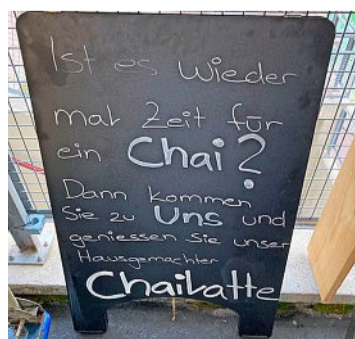 Ist es wieder
mal Zeit für
ein Chai?
Dann kommen
Sie zu Uns und
geniessen Sie unser
Hausgemachter
ChaiLatte